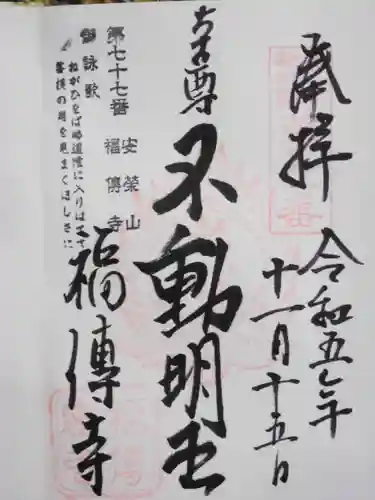 奉拝
令和五年
十一月十五日
本尊
不動明王
第七十七番 安榮山 福傳寺
御詠歌
ねがひをば
菩提の月を見まくほしさに
福傳寺